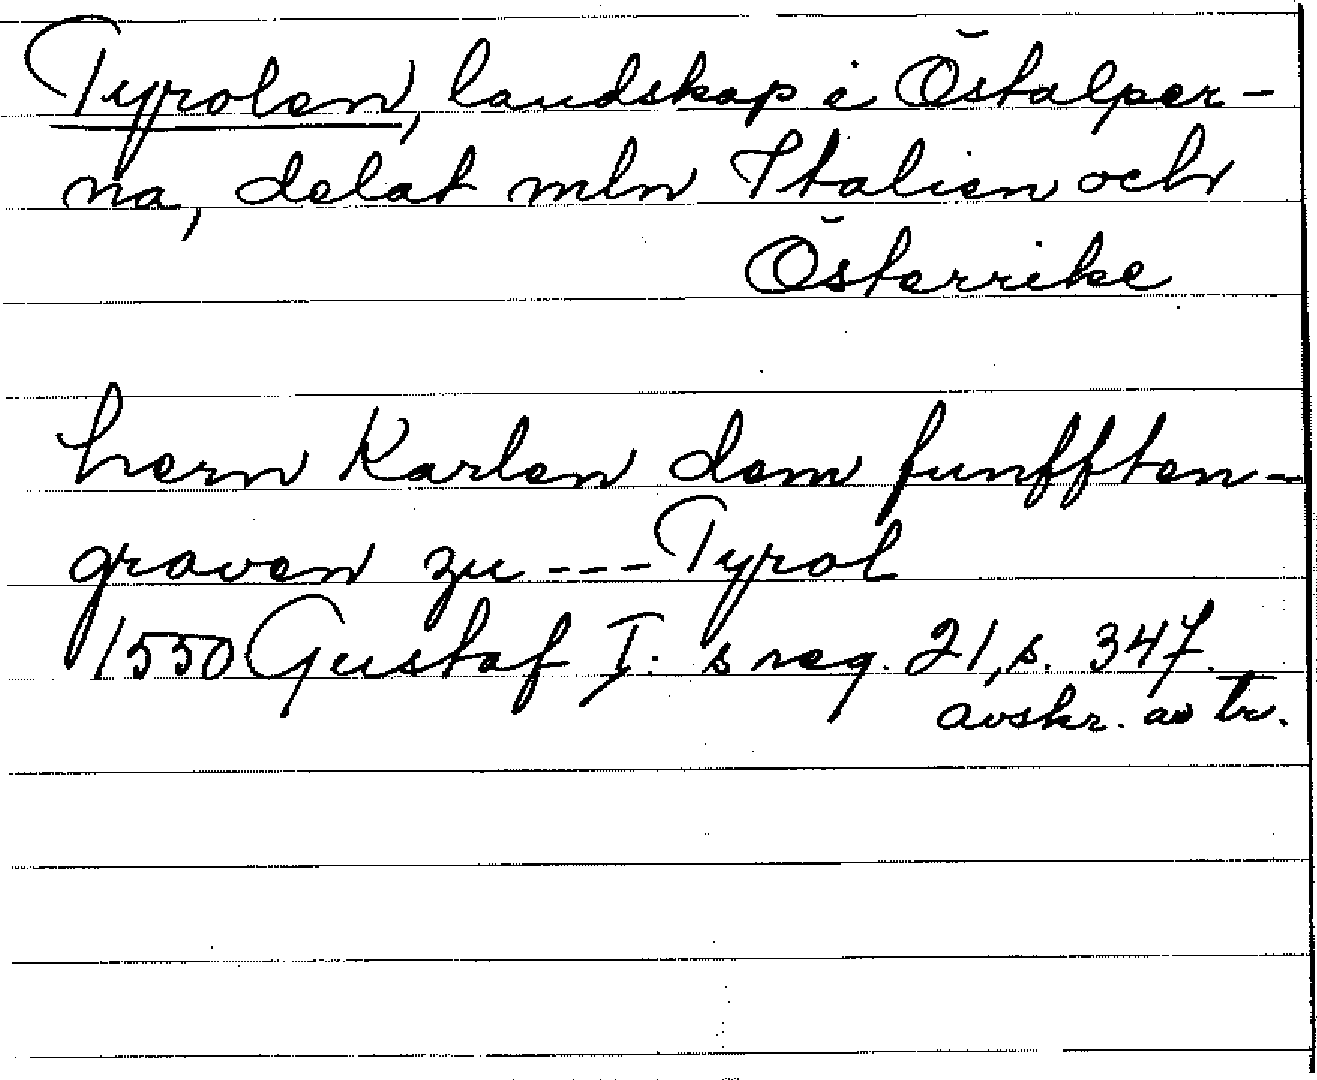 Tyrolen, landskap i Östalper-
na, delat mln Italien och
Österrike
hern Karlen dem funfften -
graven zu --- Tyrol
1550 Gustaf I: s reg. 21, s. 347.
avskr. av tr.